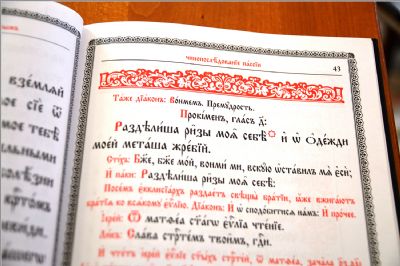 чинопослѣ́дованїе па́ссїи
43
Та́же дїа́конъ: Во́нмемъ. Премꙋ́дрость.
Прокі́менъ, гла́съ д҃:
Раздѣли́ша ри̑зы моѧ̑ себѣ̀ и҆ ѡ҆ ѻ҆де́жди
мое́й мета́ша жре́бїй.
Сті́хъ: Бж҃е, бж҃е мо́й, вонми́ ми, вскꙋ́ю ѡ҆ста́вилъ мѧ̀ є҆сѝ;
И҆ па́ки: Раздѣли́ша ри̑зы моѧ̑ себѣ̀:
Посе́мъ є҆кклисїа́рхъ раздае́тъ свѣщы̀ бра́тїи, а҆́же вжига́ютъ
бра́тїѧ ко всѧ́комꙋ є҆ѵⷢ҇лїю. Дїа́конъ: И҆ ѡ҆ сподо́битисѧ на́мъ: И҆ про́чее.
І҆ере́й: Ѿ матѳе́а ст҃а́гѡ є҆ѵⷢ҇лїа чте́нїе.
Ли́къ: Сла́ва стрⷭ҇те́мъ твои̑мъ, гдⷭ҇и.
вземлѧ́й
ное сїѐ ѿ
мое тебѣ̀
льными